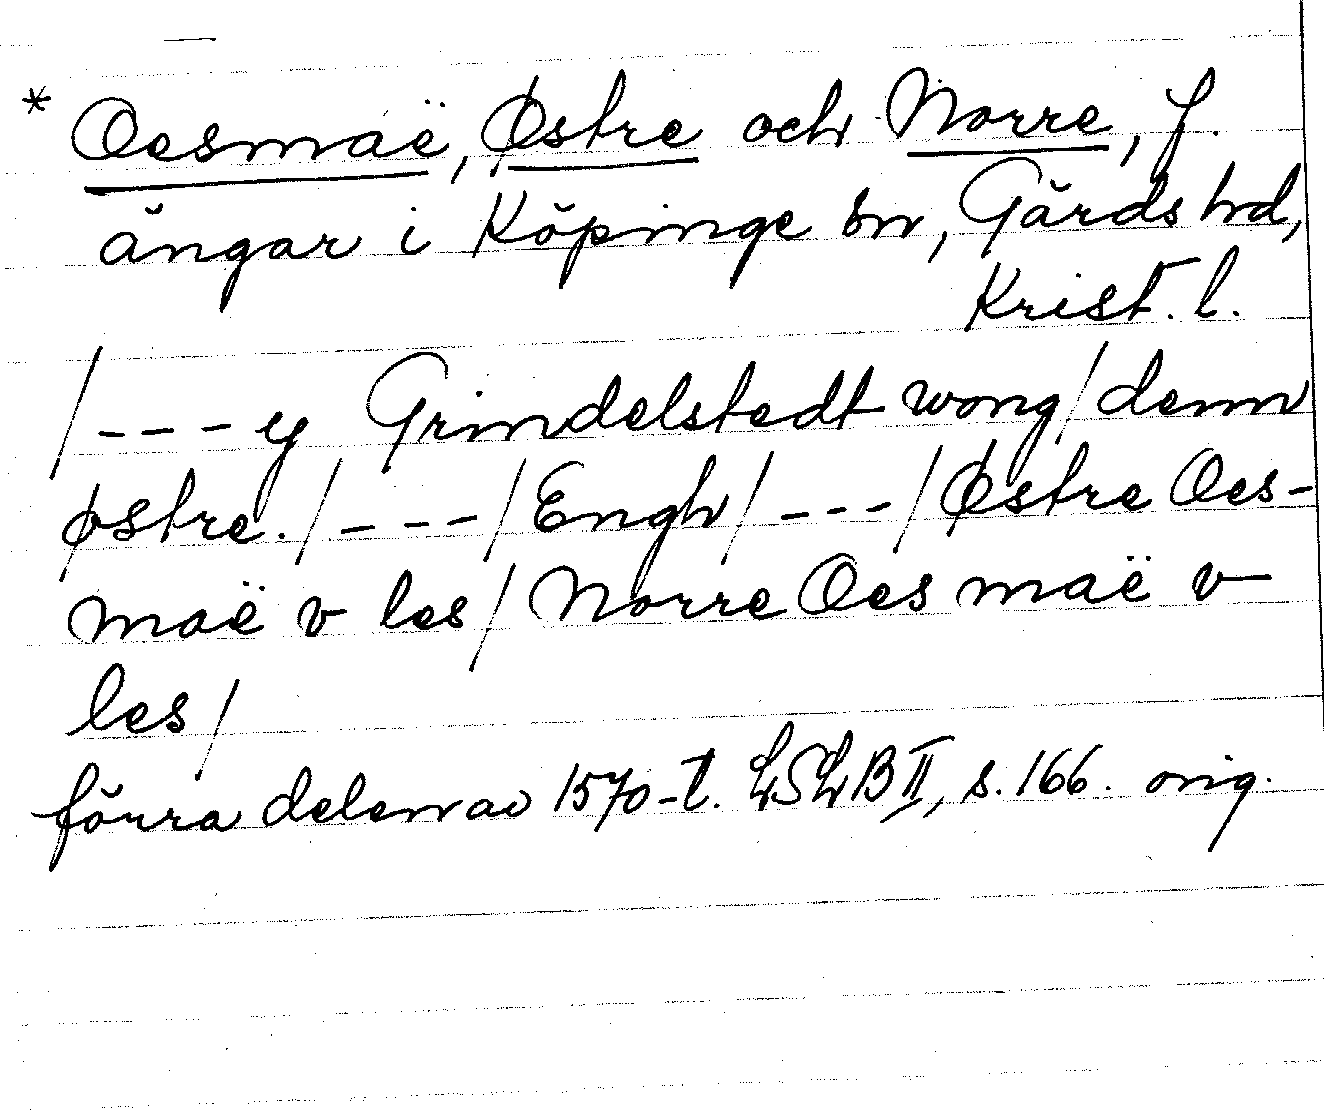 * Oesmaë, Østre och Norre, f.
ängar i Köpinge sn, Gärds hd,
Krist. l.
/---y Grindelstedt wong/denn
østre./---/Engh/---/Østre Oes-
maë v les/Norre Oes maë v
les/
förra delen av 1570-t. LSLB II, s. 166. orig.